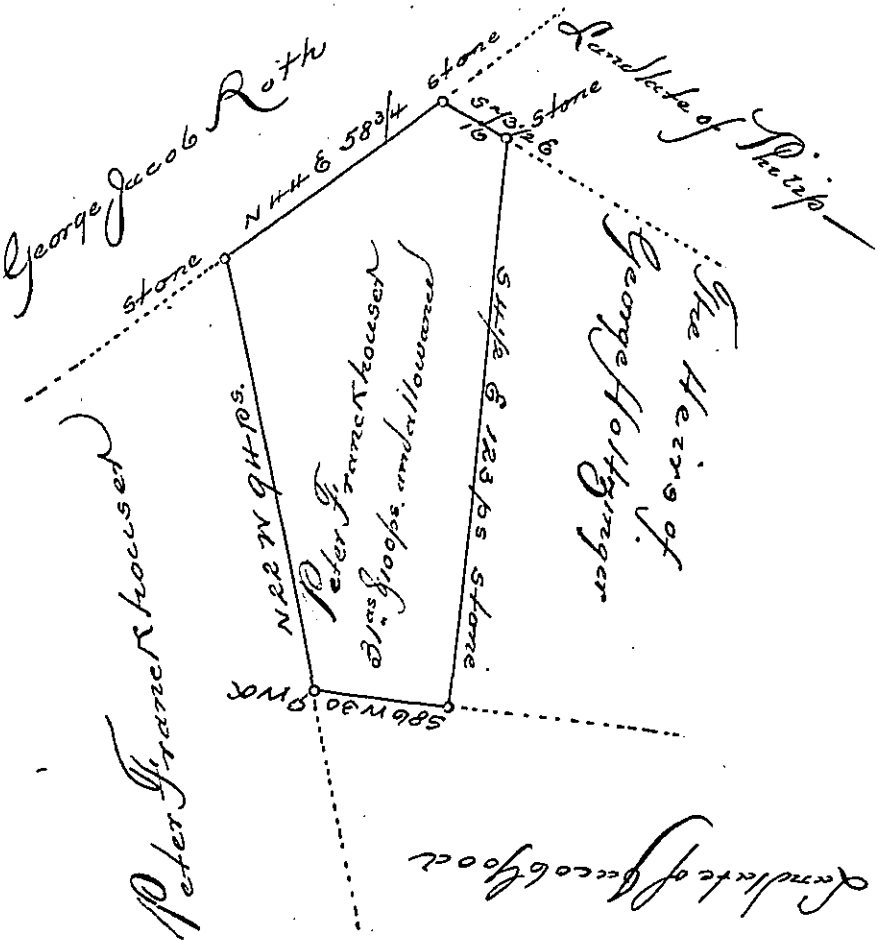 George Jacob Roth
stone
N 44 E 58 3/4
stone
S 73 1/2 E
16
stone
Land late of Philip
The Heirs of
George Holtzinger
S 4 1/2 E 123 ps stone
Peter Franckhouser
31 as & 100 ps. and allowance
N 22 W 94 ps.
Peter Franckhouser
S 86 W 30
Land late of Jacob Good